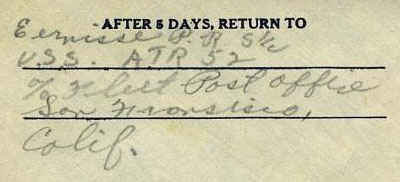 AFTER 5 DAYS, RETURN TO
Eernisse P.R. S1/c
U.S.S. ATR 52
℅ Fleet Post Office
San Fransisico,
Calif.